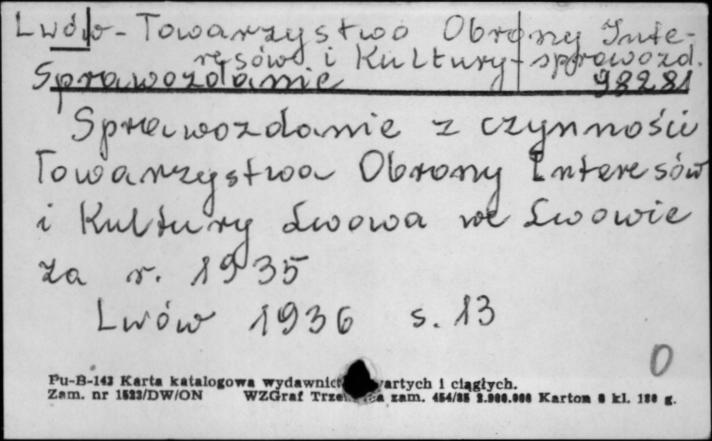 Lwów - Towarzystwo Obrony Inte-
resów i Kultury - sprawozd.
Sprawozdanie 98281
Sprawozdanie z czynności
Towarzystwa Obrony Interesów
i Kultury Lwowa we Lwowie
za r. 1935
Lwów 1936 s. 13
0
Pu-B-143 Karta katalogowa wydawnict artych i ciągłych.
Zam. nr 1523/DW/ON WZGraf zam. 454/85 Karton kl. g.